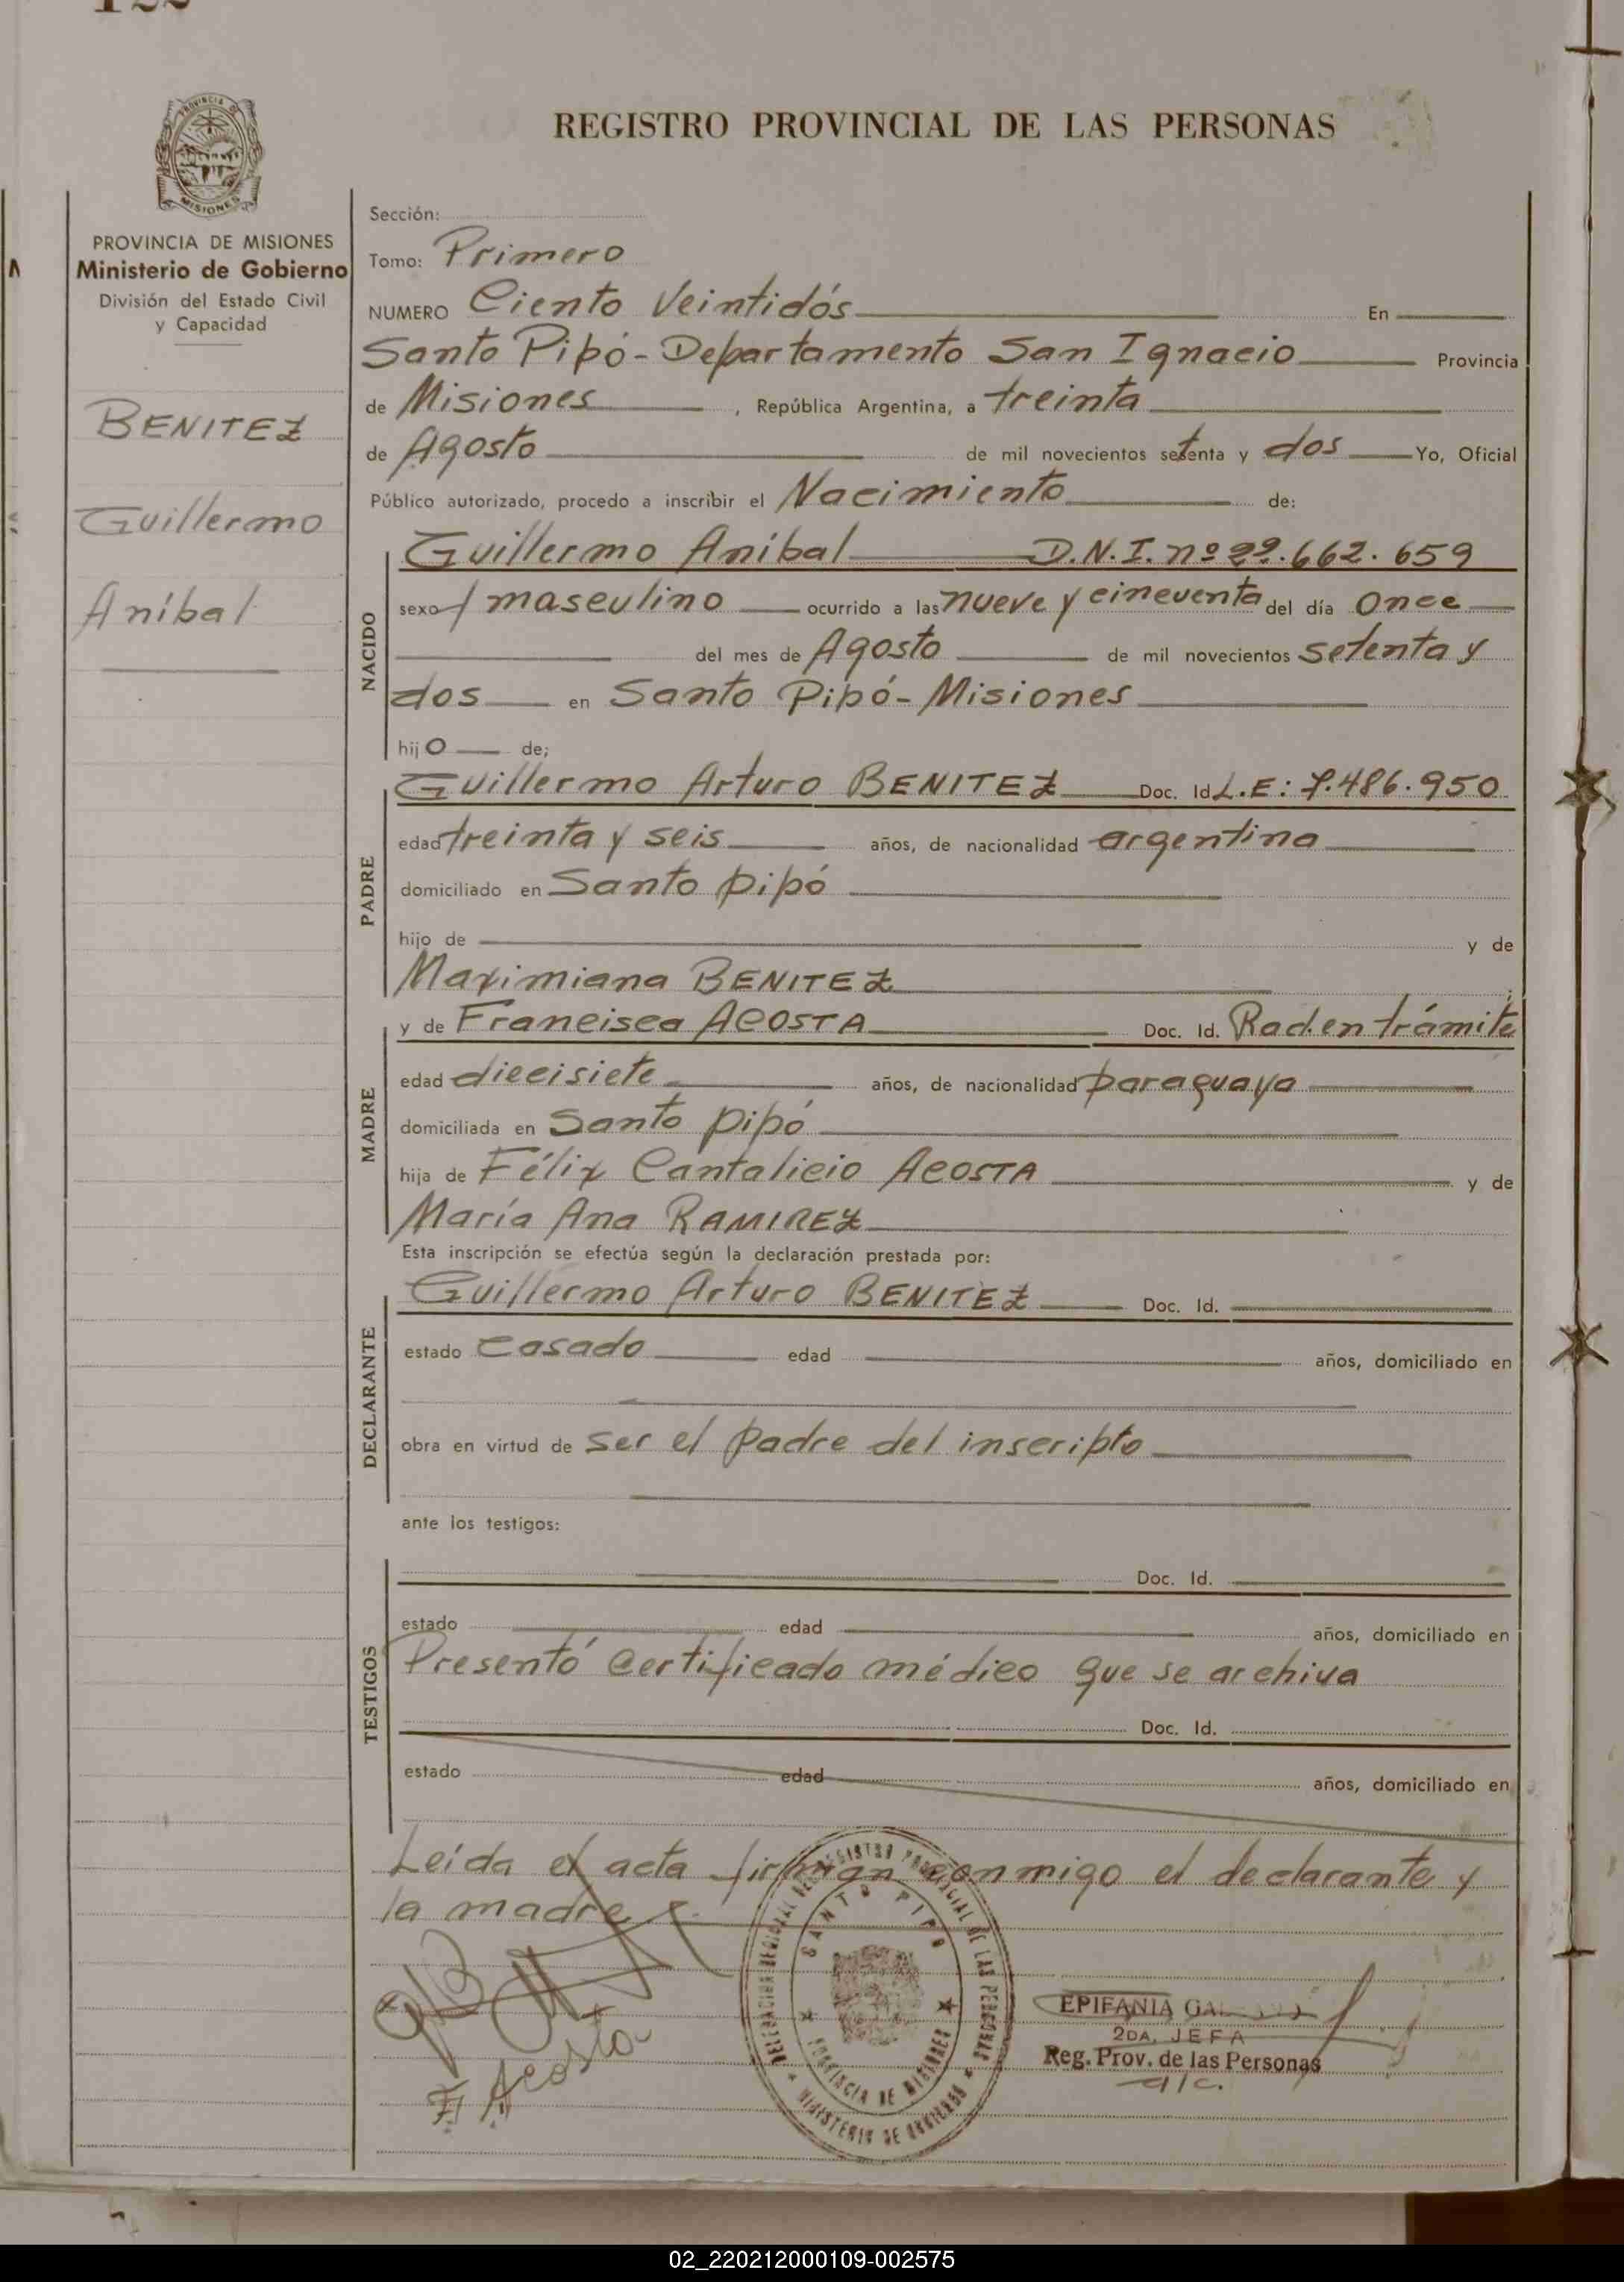 122
REGISTRO PROVINCIAL DE LAS PERSONAS
MISIONES
PROVINCIA DE MISIONES
Ministerio de Gobierno
División del Estado Civil
y Capacidad
BENITEZ
Guillermo
Aníbal
Sección:
Tomo: Primero
NUMERO Ciento Veintidós En
Santo Pipó - Departamento San Ignacio Provincia
de Misiones, República Argentina, a treinta
de Agosto de mil novecientos setenta y dos Yo, Oficial
Público autorizado, procedo a inscribir el Nacimiento de:
NACIDO
Guillermo Aníbal D.N.I. nº 22.662.659
sexo masculino ocurrido a las nueve y cincuenta del día once
del mes de Agosto de mil novecientos setenta y
dos en Santo Pipó - Misiones
hijo de;
PADRE
Guillermo Arturo BENITEZ Doc. Id L.E: 7.486.950
edad treinta y seis años, de nacionalidad argentina
domiciliado en Santo pipó
hijo de y de
Maximiana BENITEZ
MADRE
y de Francisca ACOSTA Doc. Id. Rad. en trámite
edad diecisiete años, de nacionalidad paraguaya
domiciliada en Santo pipó
hija de Félix Cantalicio ACOSTA y de
María Ana RAMIREZ
Esta inscripción se efectúa según la declaración prestada por:
DECLARANTE
Guillermo Arturo BENITEZ Doc. Id.
estado casado edad años, domiciliado en
obra en virtud de ser el padre del inscripto
ante los testigos:
TESTIGOS
Doc. Id.
estado edad años, domiciliado en
Presentó certificado médico que se archiva
Doc. Id.
estado edad años, domiciliado en
Leída el acta firman conmigo el declarante y
la madre
F. Acosta
SANTO PIPO
PROVINCIA DE MISIONES
MINISTERIO DE GOBIERNO
EPIFANIA
2DA. JEFA
Reg. Prov. de las Personas
a/c.
02_220212000109-002575